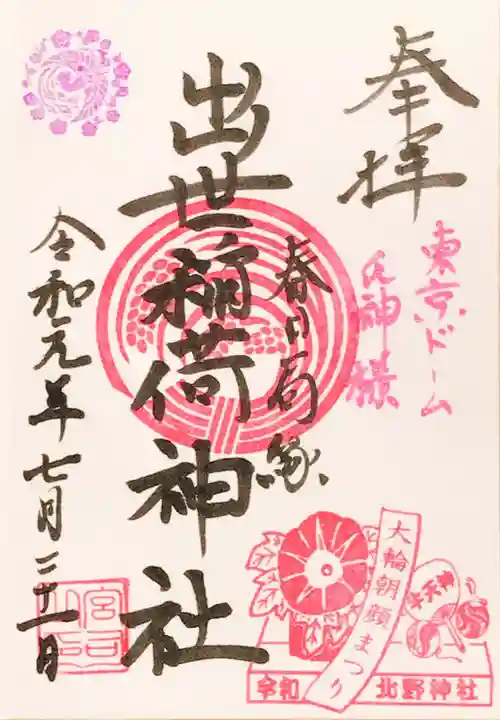 奉拝
東京ドーム
氏神様
春日局縁
出世稲荷神社
令和元年七月二十一日
大輪朝顔まつり
牛天神
令和 北野神社